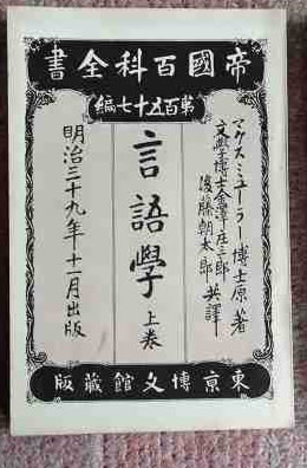 帝國百科全書
第百五十七編
マクス、ミューラー博士原著
文學博士金澤庄三郎
後藤朝太郎 共譯
言語學 上卷
明治三十九年十一月出版
東京博文館藏版